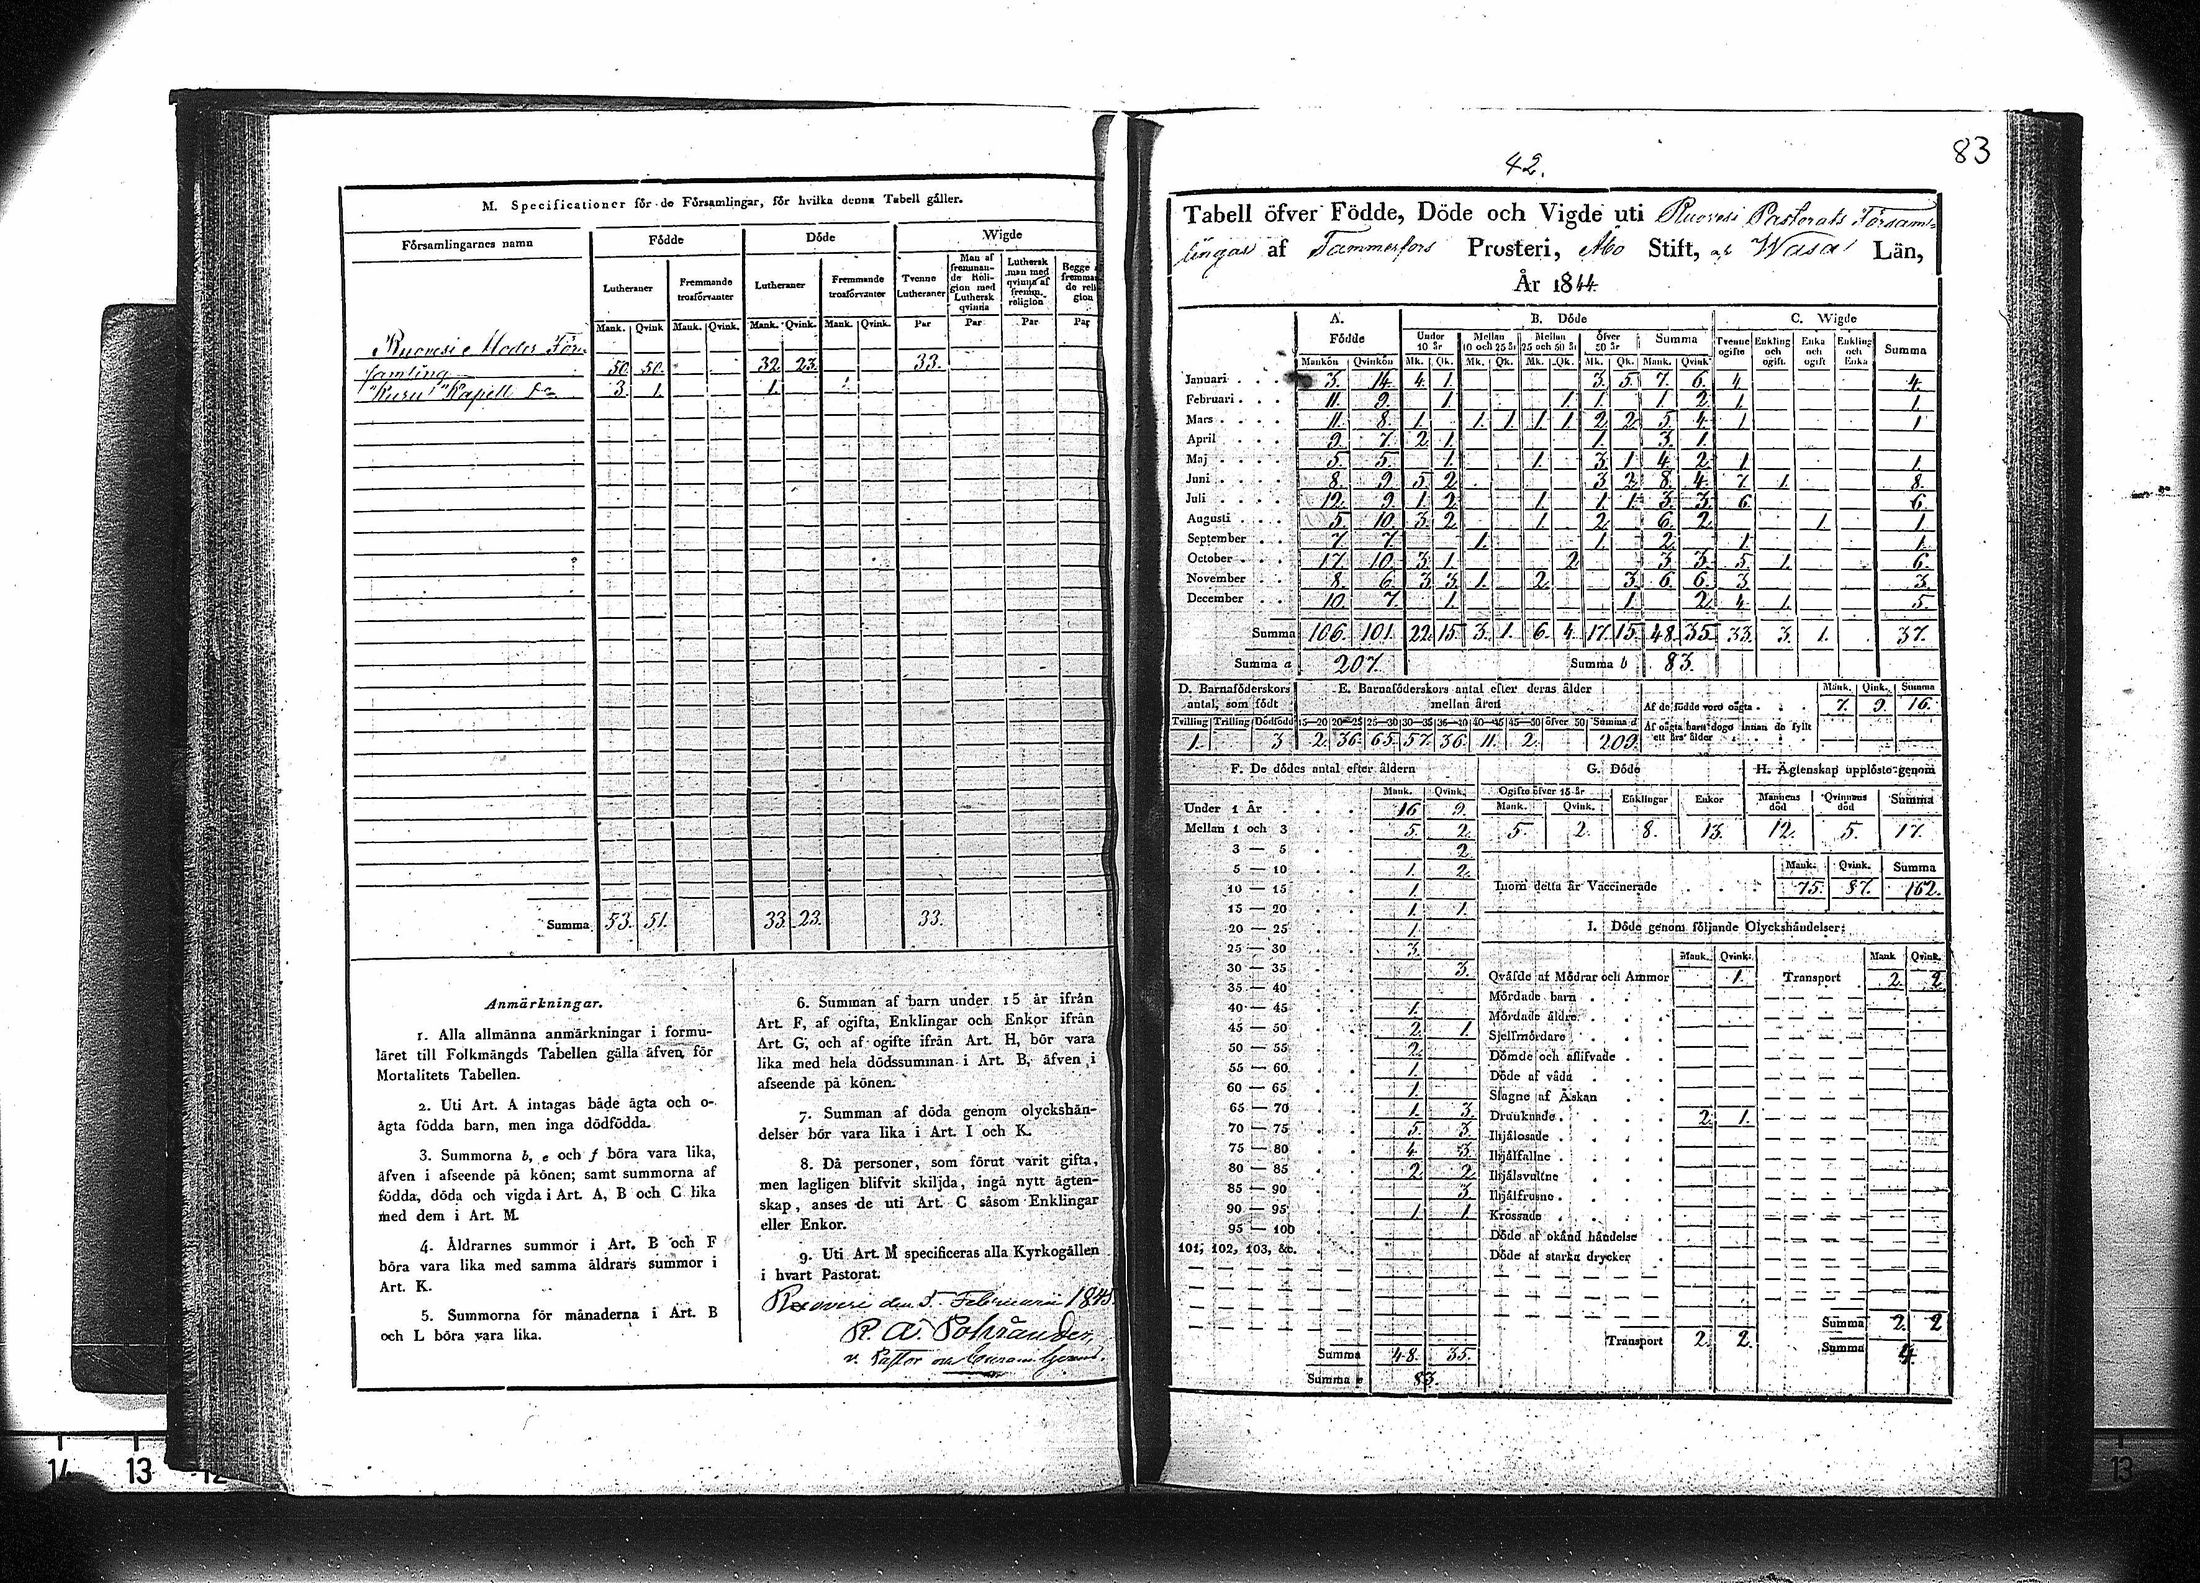 M. Specificationer för de Församlingar, för hvilka denna Tabell gäller.
Församlingarnes namn Födde Döde Wigde
Lutheraner Fremmande trosförvanter Lutheraner Fremmande trosförvanter Tvenne Lutheraner Man af fremmande Religion med Luthersk qvinna Luthersk man med qvinna af fremm. religion Begge fremmande religion
Mank. Qvink Mank. Qvink. Mank. Qvink. Mank. Qvink. Par Par Par Par
Ruovesi Moder För-
samling 50. 50. 32. 23. 33.
"Kuru" Kapell 3. 1. 1.
Summa 53. 51. 33. 23. 33.
Anmärkningar.
1. Alla allmänna anmärkningar i formu-
läret till Folkmängds Tabellen gälla äfven för
Mortalitets Tabellen.
2. Uti Art. A intagas både ägta och o-
ägta födda barn, men inga dödfödda.
3. Summorna b, e och f böra vara lika,
äfven i afseende på könen; samt summorna af
födda, döda och vigda i Art. A, B och C lika
med dem i Art. M.
4. Åldrarnes summor i Art. B och F
böra vara lika med samma åldrars summor i
Art. K.
5. Summorna för månaderna i Art. B
och L böra vara lika.
6. Summan af barn under 15 år ifrån
Art. F, af ogifta, Enklingar och Enkor ifrån
Art. G, och af ogifte ifrån Art. H, bör vara
lika med hela dödssumman i Art. B, äfven i
afseende på könen.
7. Summan af döda genom olyckshän-
delser bör vara lika i Art. I och K.
8. Då personer, som förut varit gifta,
men lagligen blifvit skiljda, ingå nytt ägten-
skap, anses de uti Art. C såsom Enklingar
eller Enkor.
9. Uti Art. M specificeras alla Kyrkogällen
i hvart Pastorat.
Ruovesi den 5. Februarii 1845.
v. Pastor
83
42.
Tabell öfver Födde, Döde och Vigde uti Ruovesi Pastorats Försam-
lingar af Tammerfors Prosteri, Åbo Stift, Wasa Län,
År 1844.
A. Födde B. Döde C. Wigde
Under 10 år Mellan 10 och 25 år Mellan 25 och 50 år Öfver 50 år Summa Tvenne ogifte Enkling och ogift. Enka och ogift Enkling och Enka Summa
Mankön Qvinkön Mk. Qk. Mk. Qk. Mk. Qk. Mk. Qk. Mank. Qvink
Januari 3. 14. 4. 1. 3. 5. 7. 6. 4. 4.
Februari 11. 9. 1. 1. 1. 1. 2. 1. 1.
Mars 11. 8. 1. 1. 1. 1. 1. 2. 2. 5. 4. 1 1
April 9. 7. 2. 1. 1. 3. 1.
Maj 5. 5. 1. 1. 3. 1. 4. 2. 1 1.
Juni 8. 9. 5. 2. 3. 2. 8. 4. 7. 1. 8.
Juli 12. 9. 1. 2. 1. 1. 1. 3. 3. 6. 6.
Augusti 5. 10. 3. 2. 1. 2. 6. 2. 1. 1
September 7. 7. 1. 1. 2. 1. 1.
October 17. 10. 3. 1. 2. 3. 3. 5. 1. 6.
November 8. 6. 3. 3. 1. 2. 3. 6. 6. 3. 3.
December 10. 7. 1. 1. 2. 4. 1. 5.
Summa 106. 101. 22. 15. 3. 1. 6. 4. 17. 15. 48. 35. 33. 3. 1. 37.
Summa a 207. Summa b 83.
D. Barnaföderskors antal, som födt
Tvilling Trilling Dödfödd
1. 3
E. Barnaföderskors antal efter deras ålder mellan åren
15—20 20—25 25—30 30—35 35—40 40—45 45—50 öfver 50 Summa d
2. 36. 65. 57. 36. 11. 2. 209.
Mank. Qink. Summa
Af de födde voro oägta 7. 9. 16.
Af oägta barn dogo innan de fyllt
ett års ålder
F. De dödes antal efter åldern
Mank. Qvink.
Under 1 År 16 9.
Mellan 1 och 3 5. 2.
3 — 5 2
5 — 10 1. 2.
10 — 15 1.
15 — 20 1. 1.
20 — 25 1.
25 — 30 3.
30 — 35 3.
35 — 40
40 — 45 1.
45 — 50 2. 1.
50 — 55 2.
55 — 60 1.
60 — 65 1.
65 — 70 1. 3.
70 — 75 5. 3.
75 — 80 4. 3.
80 — 85 2. 2.
85 — 90 3.
90 — 95 1. 1.
95 — 100
101, 102, 103, &c.
Summa 48. 35.
Summa e 83.
G. Döde
Ogifte öfver 15 år Enklingar Enkor
Mank. Qvink.
5. 2. 8. 13.
H. Ägtenskap upplöste genom
Mannens död Qvinnans död Summa
12. 5. 17.
Mank. Qvink. Summa
Inom detta år Vaccinerade 75. 87. 162.
I. Döde genom följande Olyckshändelser:
Mank. Qvink. Mank Qvink.
Qväfde af Mödrar och Ammor 1. Transport 2. 2.
Mördade barn
Mördade äldre
Sjelfmördare
Dömde och aflifvade
Döde af våda
Slagne af Åskan
Drunknade 2. 1.
Ihjälosade
Ihjälfallne
Ihjälsvultne
Ihjälfrusne
Krossade
Döde af okänd händelse
Döde af starka drycker
Summa 2. 2
Transport 2. 2. Summa 4.
14 13 12
13